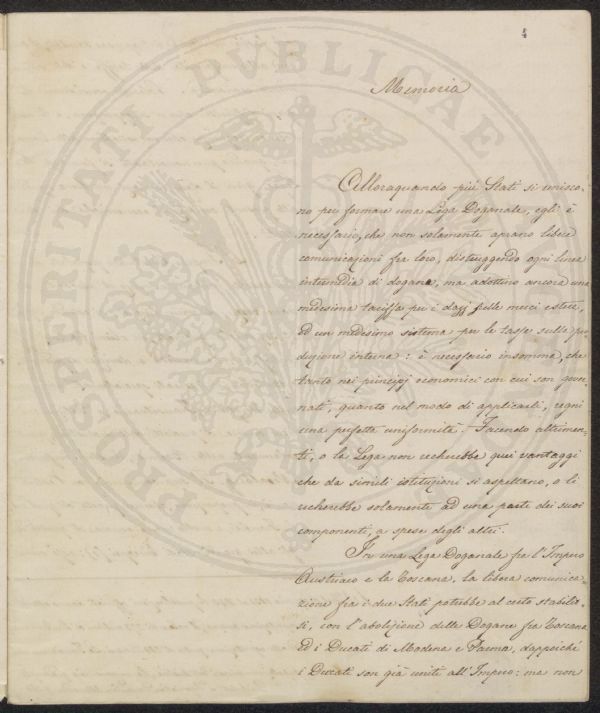 4
PROSPERITATI PVBLICAE
Memoria
Alloraquando più Stati si unisco-
no per formare una Lega Doganale, egli è
necessario, che non solamente aprano libere
comunicazioni fra loro, distruggendo ogni linea
intermedia di dogana, ma adottino ancora una
medesima tariffa per i dazj sulle merci estere,
ed un medesimo sistema per le tasse sulla pro-
duzione interna: è necessario insomma, che
tanto nei principj economici con cui son gover-
nati, quanto nel modo di applicarli, regni
una perfetta uniformità. Facendo altrimen-
ti, o la Lega non recherebbe quei vantaggi
che da simili istituzioni si aspettano, o li
recherebbe solamente ad una parte dei suoi
componenti, a spese degli altri.
In una Lega Doganale fra l'Impero
Austriaco e la Toscana, la libera comunica-
zione fra i due Stati potrebbe al certo stabilir-
si, con l'abolizione delle Dogane fra Toscana
ed i Ducati di Modena e Parma, dappoiché
i Ducati son già uniti all'Impero: ma non